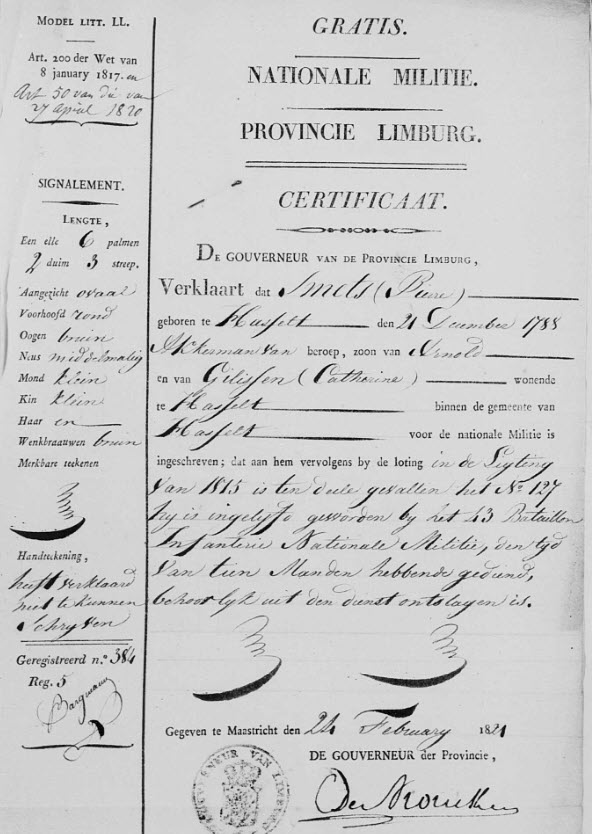 MODEL LITT. LL.
Art. 200 der Wet van
8 january 1817. en
Art 50 van die van
27 april 1820
SIGNALEMENT.
LENGTE,
Een elle 6 palmen
2 duim 3 streep.
Aangezicht ovaal
Voorhoofd rond
Oogen bruin
Neus middelmatig
Mond klein
Kin klein
Haar en
Wenkbraauwen bruin
Merkbare teekenen
Handteekening,
heeft verklaard
niet te kunnen
schryven
Geregistreerd n.º 384
Reg. 5
GRATIS.
NATIONALE MILITIE.
PROVINCIE LIMBURG.
CERTIFICAAT.
DE GOUVERNEUR VAN DE PROVINCIE LIMBURG,
Verklaart dat Smets (Pierre)
geboren te Hasselt den 21 December 1788
Akkerman van beroep, zoon van Arnold
en van Gilissen (Catherine) wonende
te Hasselt binnen de gemeente van
Hasselt voor de nationale Militie is
ingeschreven; dat aan hem vervolgens by de loting in de Ligting
van 1815 is ten deele gevallen het Nº 127
hy is ingelyfd geworden by het 43 Bataillon
Infanterie Nationale Militie, den tyd
van tien Manden hebbende gediend,
behoorlyk uit den dienst ontslagen is.
Gegeven te Maastricht den 24 February 1821
DE GOUVERNEUR der Provincie,
GOUVERNEUR VAN LIMBURG